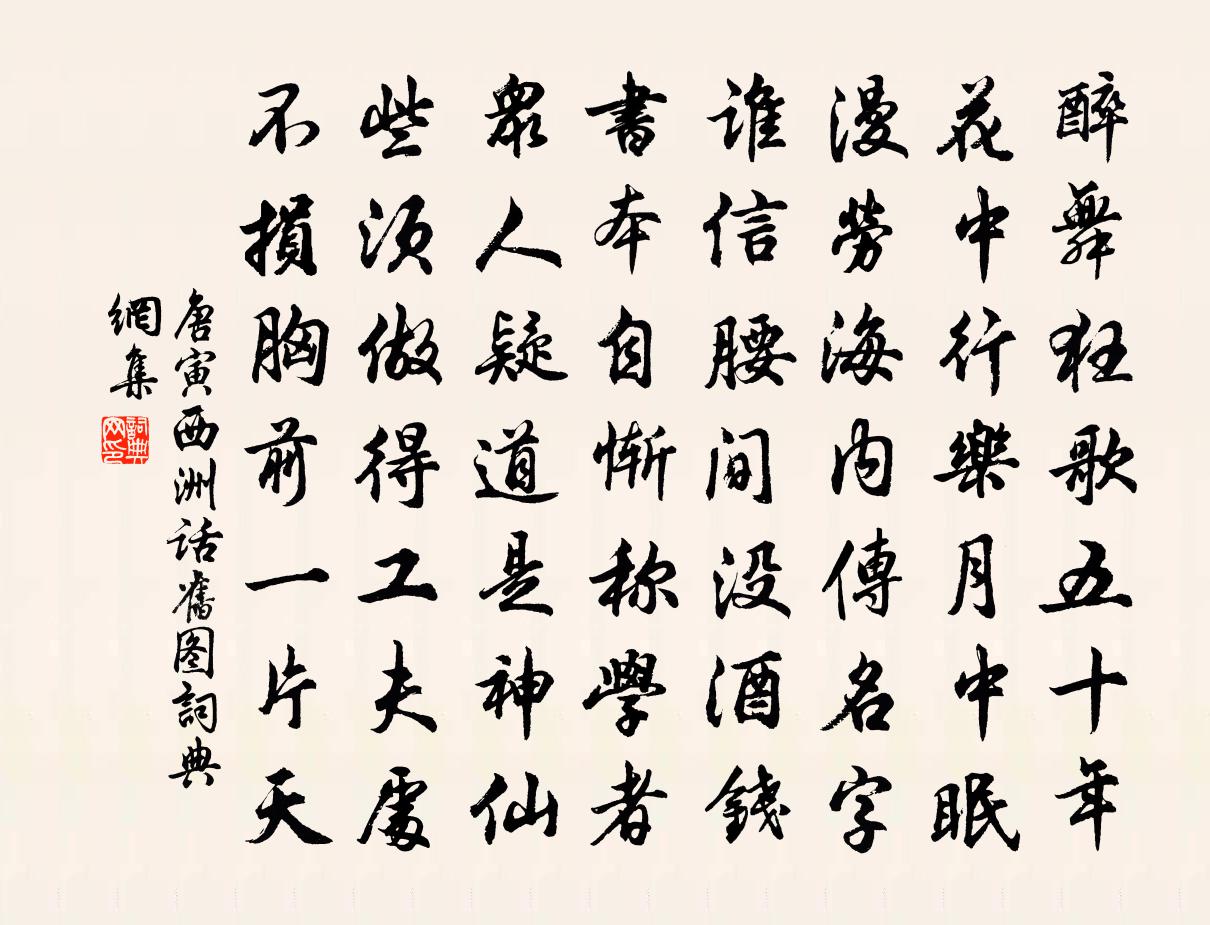 醉舞狂歌五十年
花中行樂月中眠
漫勞海内傳名字
谁信腰间没酒錢
書本自慚称學者
眾人疑道是神仙
些须做得工夫處
不損胸前一片天
唐寅西洲话舊图詞典
網集
詞典
网印